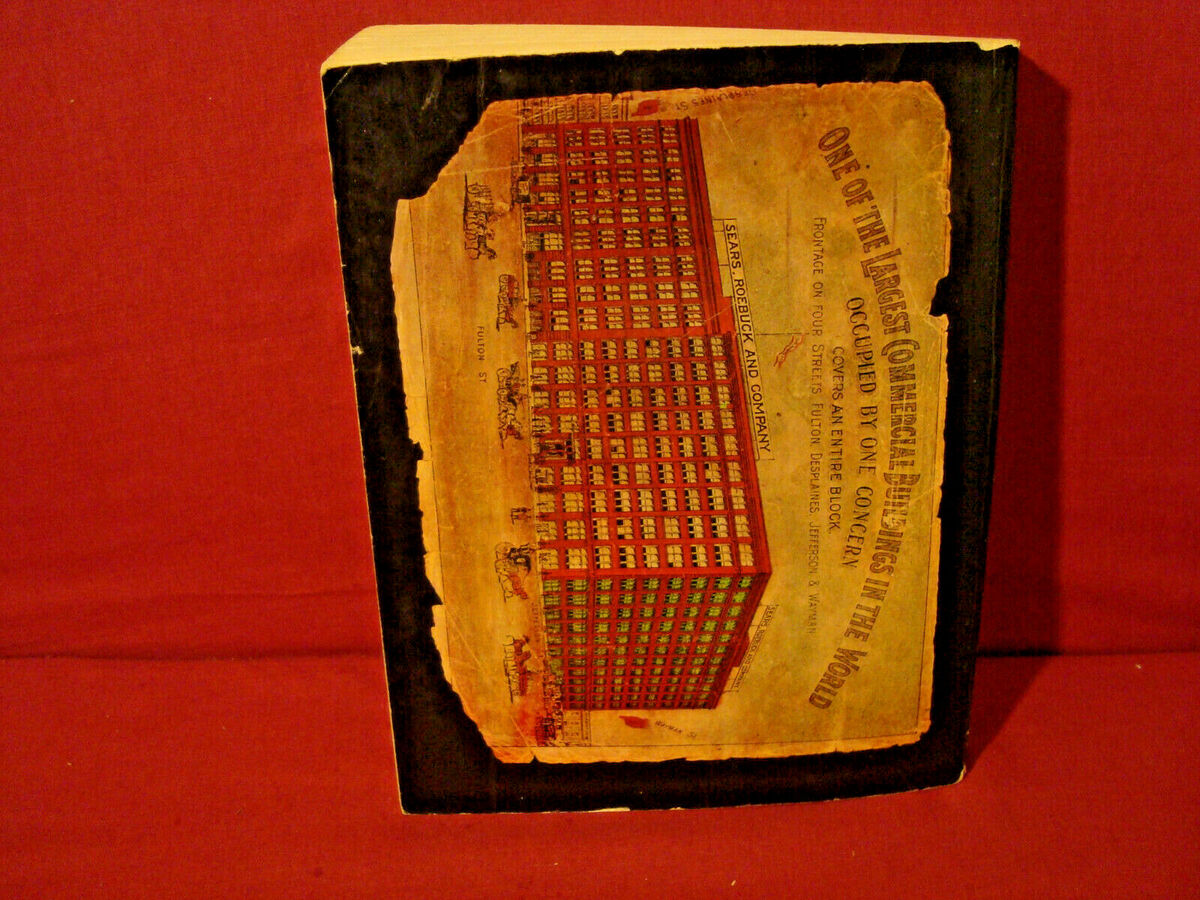 ONE OF THE LARGEST COMMERCIAL BUILDINGS IN THE WORLD
OCCUPIED BY ONE CONCERN
COVERS AN ENTIRE BLOCK.
FRONTAGE ON FOUR STREETS, FULTON, DESPLAINES, JEFFERSON & WAYMAN
SEARS, ROEBUCK AND COMPANY
SEARS, ROEBUCK AND COMPANY
DESPLAINES ST
FULTON ST